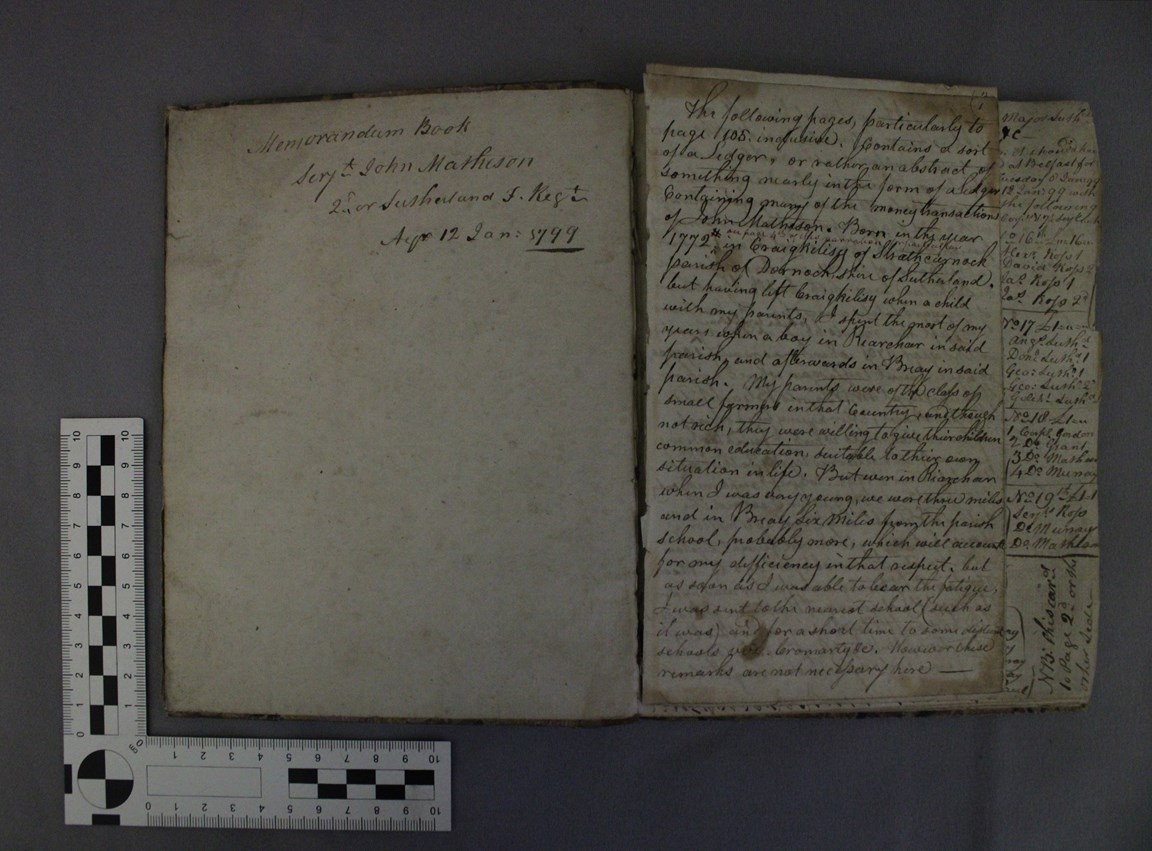 Memorandum Book
Serjt. John Matheson
2d. or Sutherland F. Regt
Ayr 12 Jan: 1799
The following pages, particularly to
page 105. inclusive. Contains a sort
of a Ledger, or rather an abstract of
something nearly in the form of a ledger
Containing many of the money transactions
of John Matheson. Born in the year
1772 in Craighilisy of Strathcarnock
parish of Dornoch shire of Sutherland.
but having left Craighilisy when a child
with my parents, I spent the most of my
years when a boy in Rearchar in said
parish, and afterwards in Breay in said
parish. My parents were of the class of
small farmers in that Country, and though
not rich, they were willing to give their children
common education, suitable to their own
situation in life. But even in Riarchar
when I was very young, we were three miles
and in Breay six miles from the parish
school, probably more, which will account
for my difficiency in that respect. but
as soon as I was able to bear the fatigue,
I was sent to the nearest school (such as
it was) and for a short time to some distant
schools Cromarty &c. However these
remarks are not necessary here —
Major Suthd.
&c —
at Belfast for
12 Jan: 99 with
the following
David Ross 2
Ross 1
Ross 2d
No. 17
Angs. Suthd.
Dond. Suthd. 1
Geo: Suthd. 1
Geo: Suthd. 2
Suthd.
No. 18
1 Corpl. Gordon
2 Do. Grant
3 Do. Matheson
4 Do. Murray
No. 19
Serjt. Ross
Do. Murray
Do. Matheson
NB: this card
to Page 2d. or the
other side —